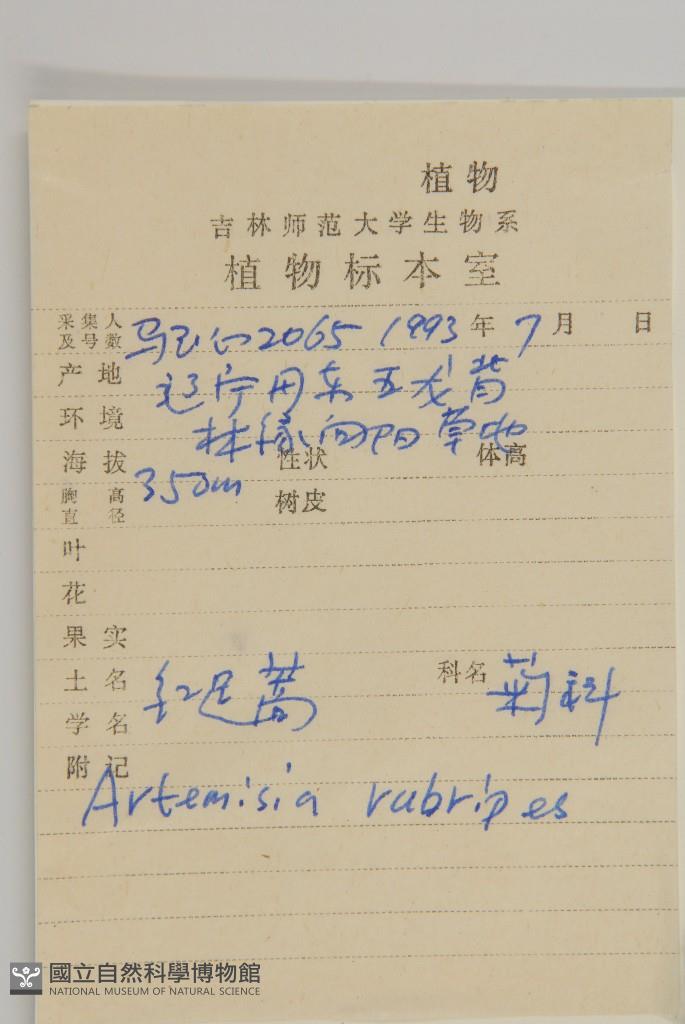 植物
吉林师范大学生物系
植物标本室
采集人及号数 马 2065 1993年7月 日
产地 辽宁丹东五龙背
环境 林缘向阳草地
海拔 350m 性状 体高
胸高直径 树皮
叶
花
果实
土名 红足蒿 科名 菊科
学名
附记
Artemisia rubripes
國立自然科學博物館
NATIONAL MUSEUM OF NATURAL SCIENCE